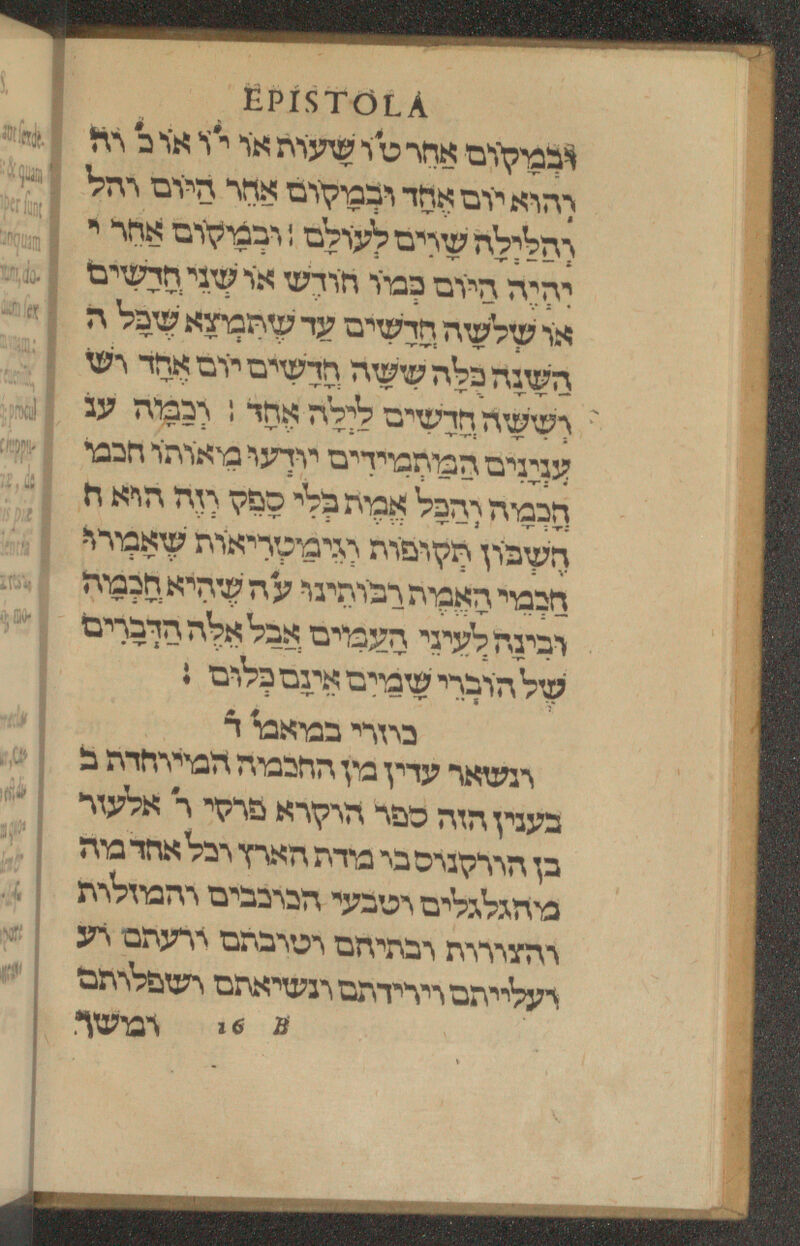 EPISTOLA
וּבְמָקוֹם אַחֵר ט"ו שָׁעוֹת אוֹ י"ו אוֹ כ' וה
וְהוּא יוֹם אֶחָד וּבְמָקוֹם אַחֵר הַיּוֹם והל
וְהַלַּיְלָה שָׁוִים לְעוֹלָם : וּבְמָקוֹם אַחֵר י
יִהְיֶה הַיּוֹם כְּמוֹ חוֹדֶשׁ אוֹ שְׁנֵי חֳדָשִׁים
אוֹ שְׁלֹשָׁה חֳדָשִׁים עַד שֶׁתִּמְצָא שֶׁכָּל ה
הַשָּׁנָה כֻּלָּהּ שִׁשָּׁה חֳדָשִׁים יוֹם אֶחָד וש
וְשִׁשָּׁה חֳדָשִׁים לַיְלָה אֶחָד : וְכַמָּה ענ
עִנְיָנִים הַמַּתְמִידִים יוֹדְעוּ מֵאוֹתוֹ חכמ
חָכְמָה וְהַכֹּל אֱמֶת בְּלִי סָפֵק וְזֶה הוּא ח
חֶשְׁבּוֹן תְּקוּפוֹת וְגִימַטְרִיאוֹת שֶׁאָמְרוּ
חַכְמֵי הָאֱמֶת רַבּוֹתֵינוּ ע"ה שֶׁהִיא חָכְמָה
וּבִינָה לְעֵינֵי הָעַמִּים אֲבָל אֵלֶּה הַדְּבָרִים
שֶׁל הוֹבְרֵי שָׁמַיִם אֵינָם כְּלוּם :
כוזרי במאמ' ד'
ונשאר עדין מן החכמה המיוחדת ב
בענין הזה ספר הנקרא פרקי ר' אלעזר
בן הורקנוס בו מדת הארץ וכל אחד מה
מהגלגלים וטבעי הכוכבים והמזלות
והצורות ובתיהם וטובתם ורעתם וע
ועלייתם וירידתם ונשיאתם ושפלותם
16 B ומשך